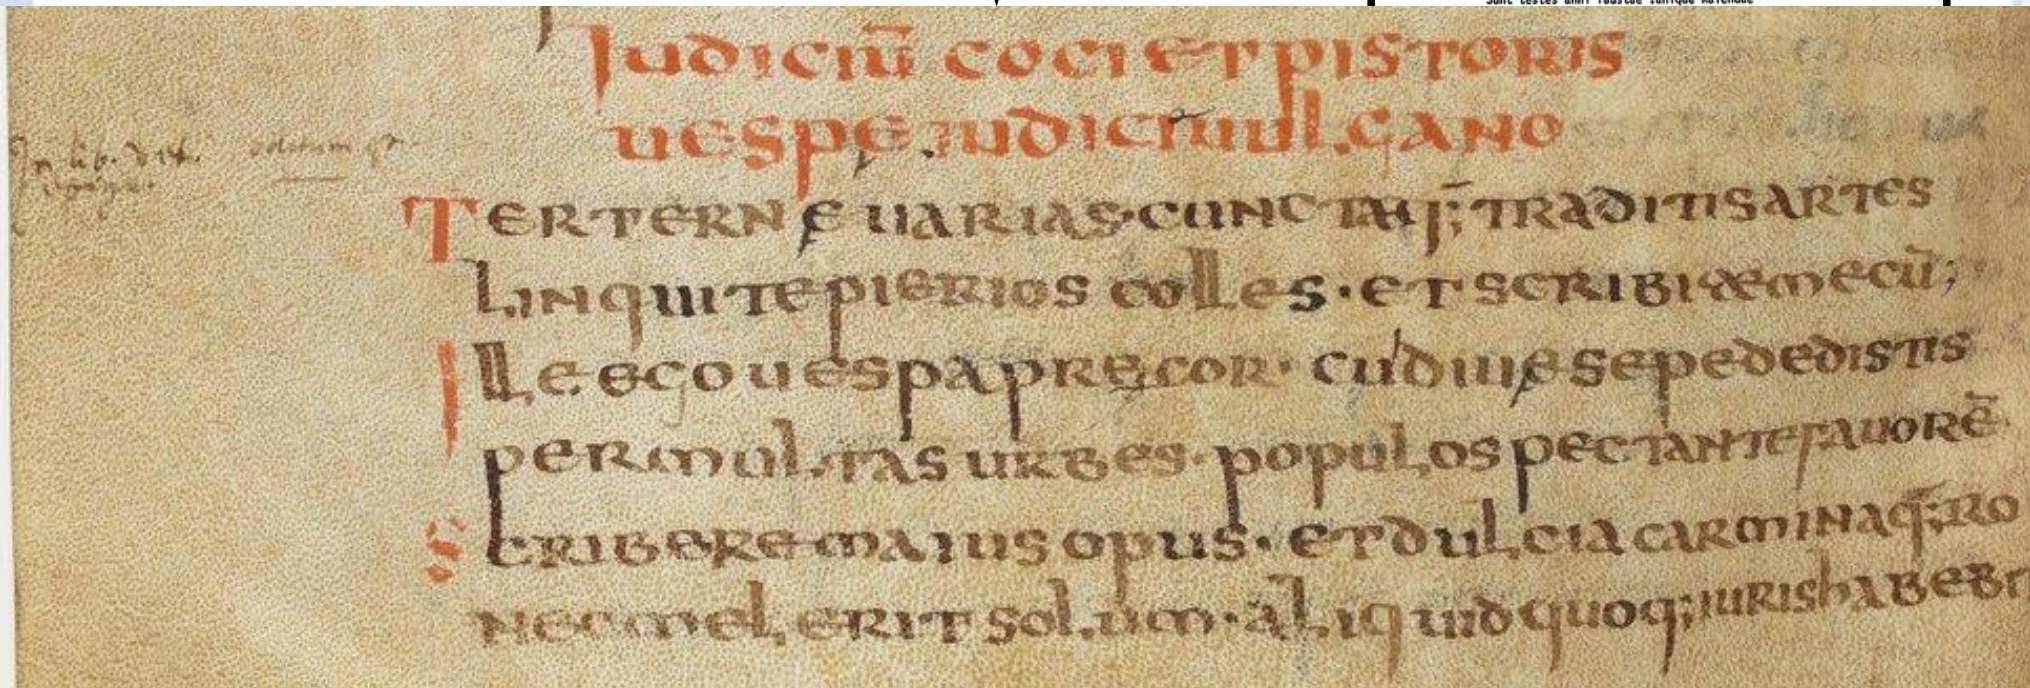 Sunt testes anni faustae Ianique Kalendae
Iudiciū coci et pistoris
uespe iudice uulcano
Ter ternę uarias cunctaq; traditis artes
Linquite pierios colles · et scribite mecū;
Ille ego uespa pręcor · cui diuę sepe dedistis
per multas urbes · populo spectante fauorē
Scribere maius opus · et dulcia carmina q;ro
Nec mel erit solum · aliquid quoq; iuris habebi